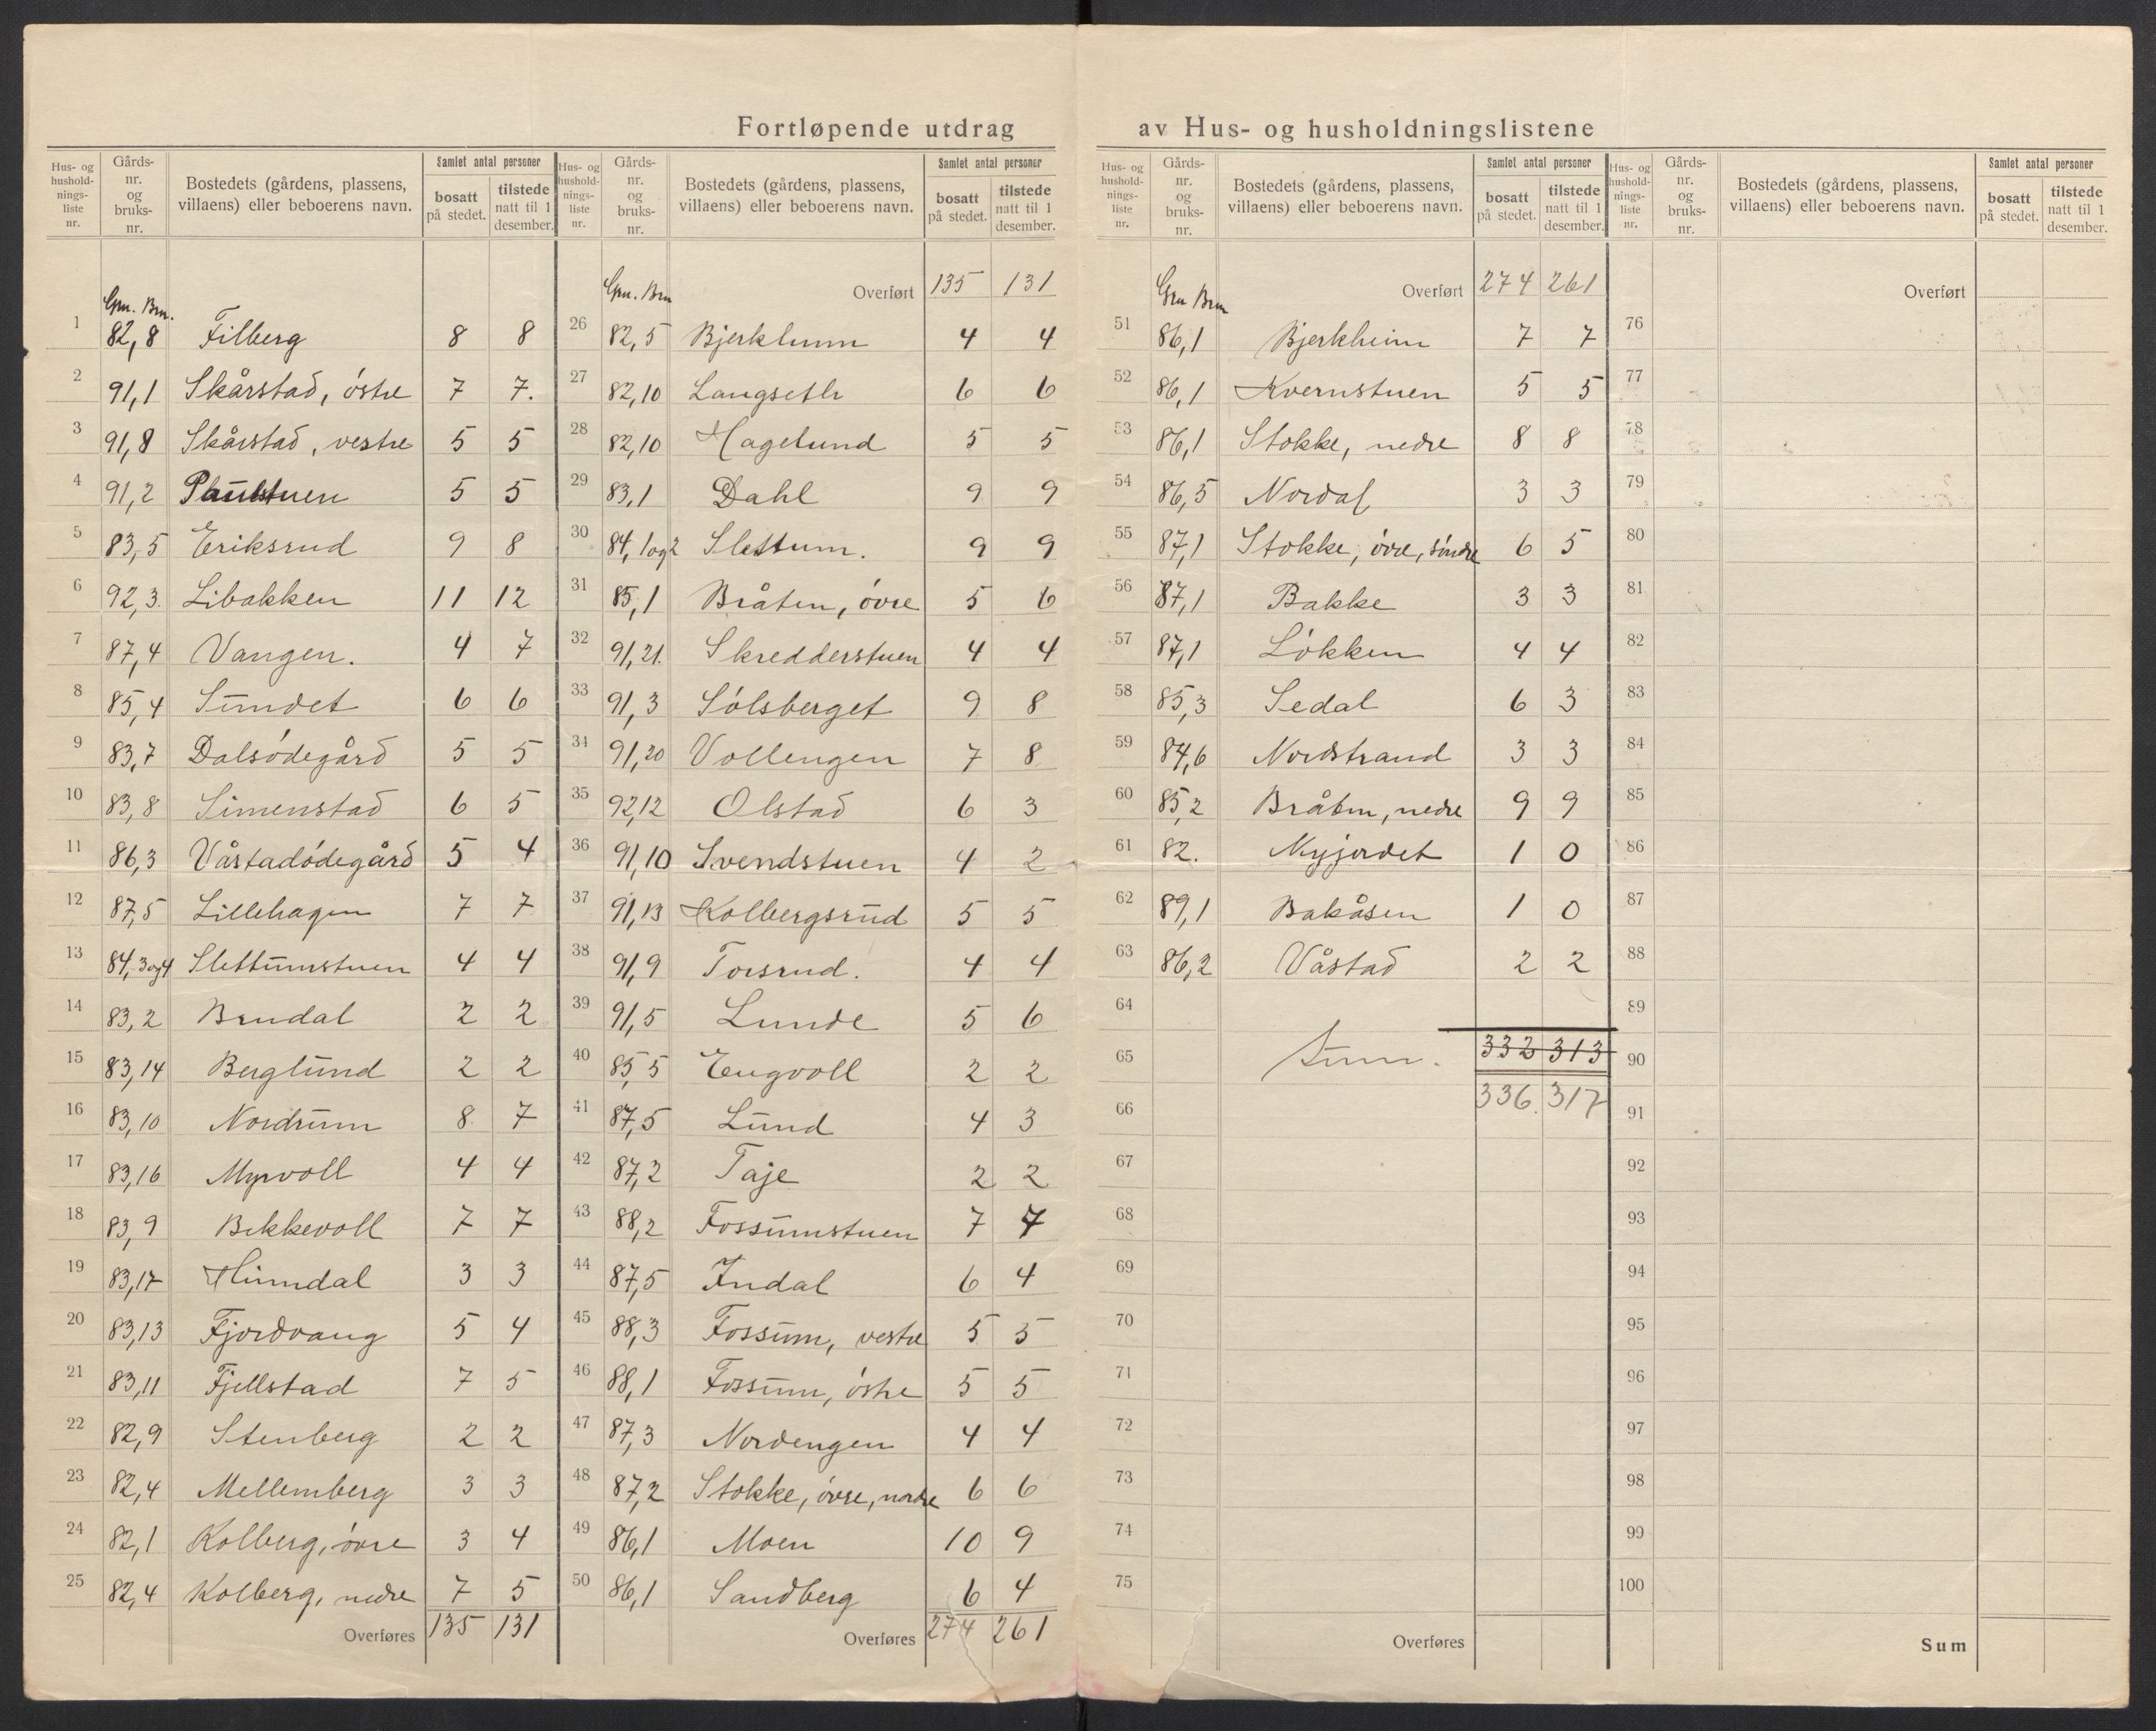 Fortløpende utdrag av Hus- og husholdningslistene
Hus- og hushold-nings-liste nr. | Gårds-nr. og bruks-nr. | Bostedets (gårdens, plassens, villaens) eller beboerens navn. | Samlet antal personer | bosatt på stedet. | tilstede natt til 1 desember.
Gnr. Bnr.
1 82,8 Filberg 8 8
2 91,1 Skårstad, östre 7 7.
3 91,8 Skårstad, vestre 5 5
4 91,2 Paulstuen 5 5
5 83,5 Eriksrud 9 8
6 92,3. Libakken 11 12
7 87,4 Vangen. 4 7
8 85,4 Sundet 6 6
9 83,7 Dalsödegård 5 5
10 83,8 Simenstad 6 5
11 86,3 Våstadödegård 5 4
12 87,5 Lillehagen 7 7
13 84,3og4 Slettumstuen 4 4
14 83,2 Brudal 2 2
15 83,14 Berglund 2 2
16 83,10 Nordrum 8 7
17 83,16 Myrvoll 4 4
18 83,9 Bekkevoll 7 7
19 83,17 Humdal 3 3
20 83,13 Fjordvang 5 4
21 83,11 Fjellstad 7 5
22 82,9 Stenberg 2 2
23 82,4 Mellemberg 3 3
24 82,1 Kolberg, övre 3 4
25 82,4 Kolberg, nedre 7 5
Overføres 135 131
Hus- og hushold-nings-liste nr. | Gårds-nr. og bruks-nr. | Bostedets (gårdens, plassens, villaens) eller beboerens navn. | Samlet antal personer | bosatt på stedet. | tilstede natt til 1 desember.
Gnr. Bnr
Overført 135 131
26 82,5 Bjerklunn 4 4
27 82,10 Langseth 6 6
28 82,10 Hagelund 5 5
29 83,1 Dahl 9 9
30 84,1og2 Slettum. 9 9
31 85,1 Bråten, övre 5 6
32 91,21. Skredderstuen 4 4
33 91,3 Sölsberget 9 8
34 91,20 Vollengen 7 8
35 92,12 Olstad 6 3
36 91,10 Svendstuen 4 2
37 91,13 Kolbergsrud 5 5
38 91,9 Torsrud. 4 4
39 91,5 Lunde 5 6
40 85,5 Engvoll 2 2
41 87,5 Lund 4 3
42 87,2 Taje 2 2
43 88,2 Fossumstuen 7 7
44 87,5 Indal 6 4
45 88,3 Fossum, vestre 5 5
46 88,1 Fossum, östre 5 5
47 87,3 Nordengen 4 4
48 87,2 Stokke, övre, nordre 6 6
49 86,1 Moen 10 9
50 86,1 Sandberg 6 4
Overføres 274 261
Hus- og hushold-nings-liste nr. | Gårds-nr. og bruks-nr. | Bostedets (gårdens, plassens, villaens) eller beboerens navn. | Samlet antal personer | bosatt på stedet. | tilstede natt til 1 desember.
Gnr Bnr
Overført 274 261
51 86,1 Bjerkheim 7 7
52 86,1 Kvernstuen 5 5
53 86,1 Stokke, nedre 8 8
54 86,5 Nordal 3 3
55 87,1 Stokke, övre, söndre 6 5
56 87,1 Bakke 3 3
57 87,1 Lökken 4 4
58 85,3 Sedal 6 3
59 84,6 Nordstrand 3 3
60 85,2 Bråten, nedre 9 9
61 82. Nyjordet 1 0
62 89,1 Bakåsen 1 0
63 86,2 Våstad 2 2
64
65 Sum. 332 313
66 336. 317
67
68
69
70
71
72
73
74
75
Overføres
Hus- og hushold-nings-liste nr. | Gårds-nr. og bruks-nr. | Bostedets (gårdens, plassens, villaens) eller beboerens navn. | Samlet antal personer | bosatt på stedet. | tilstede natt til 1 desember.
Overført
76
77
78
79
80
81
82
83
84
85
86
87
88
89
90
91
92
93
94
95
96
97
98
99
100
Sum